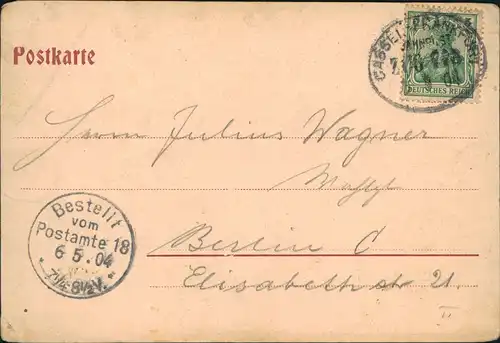 Postkarte
CASSEL-FRANKFURT
BAHNPOST
DEUTSCHES REICH
Herrn Julius Wagner
Berlin C
Elisabethstr 21
II
Bestellt
vom
Postamte 18
6 5.04
7¼-8½V.